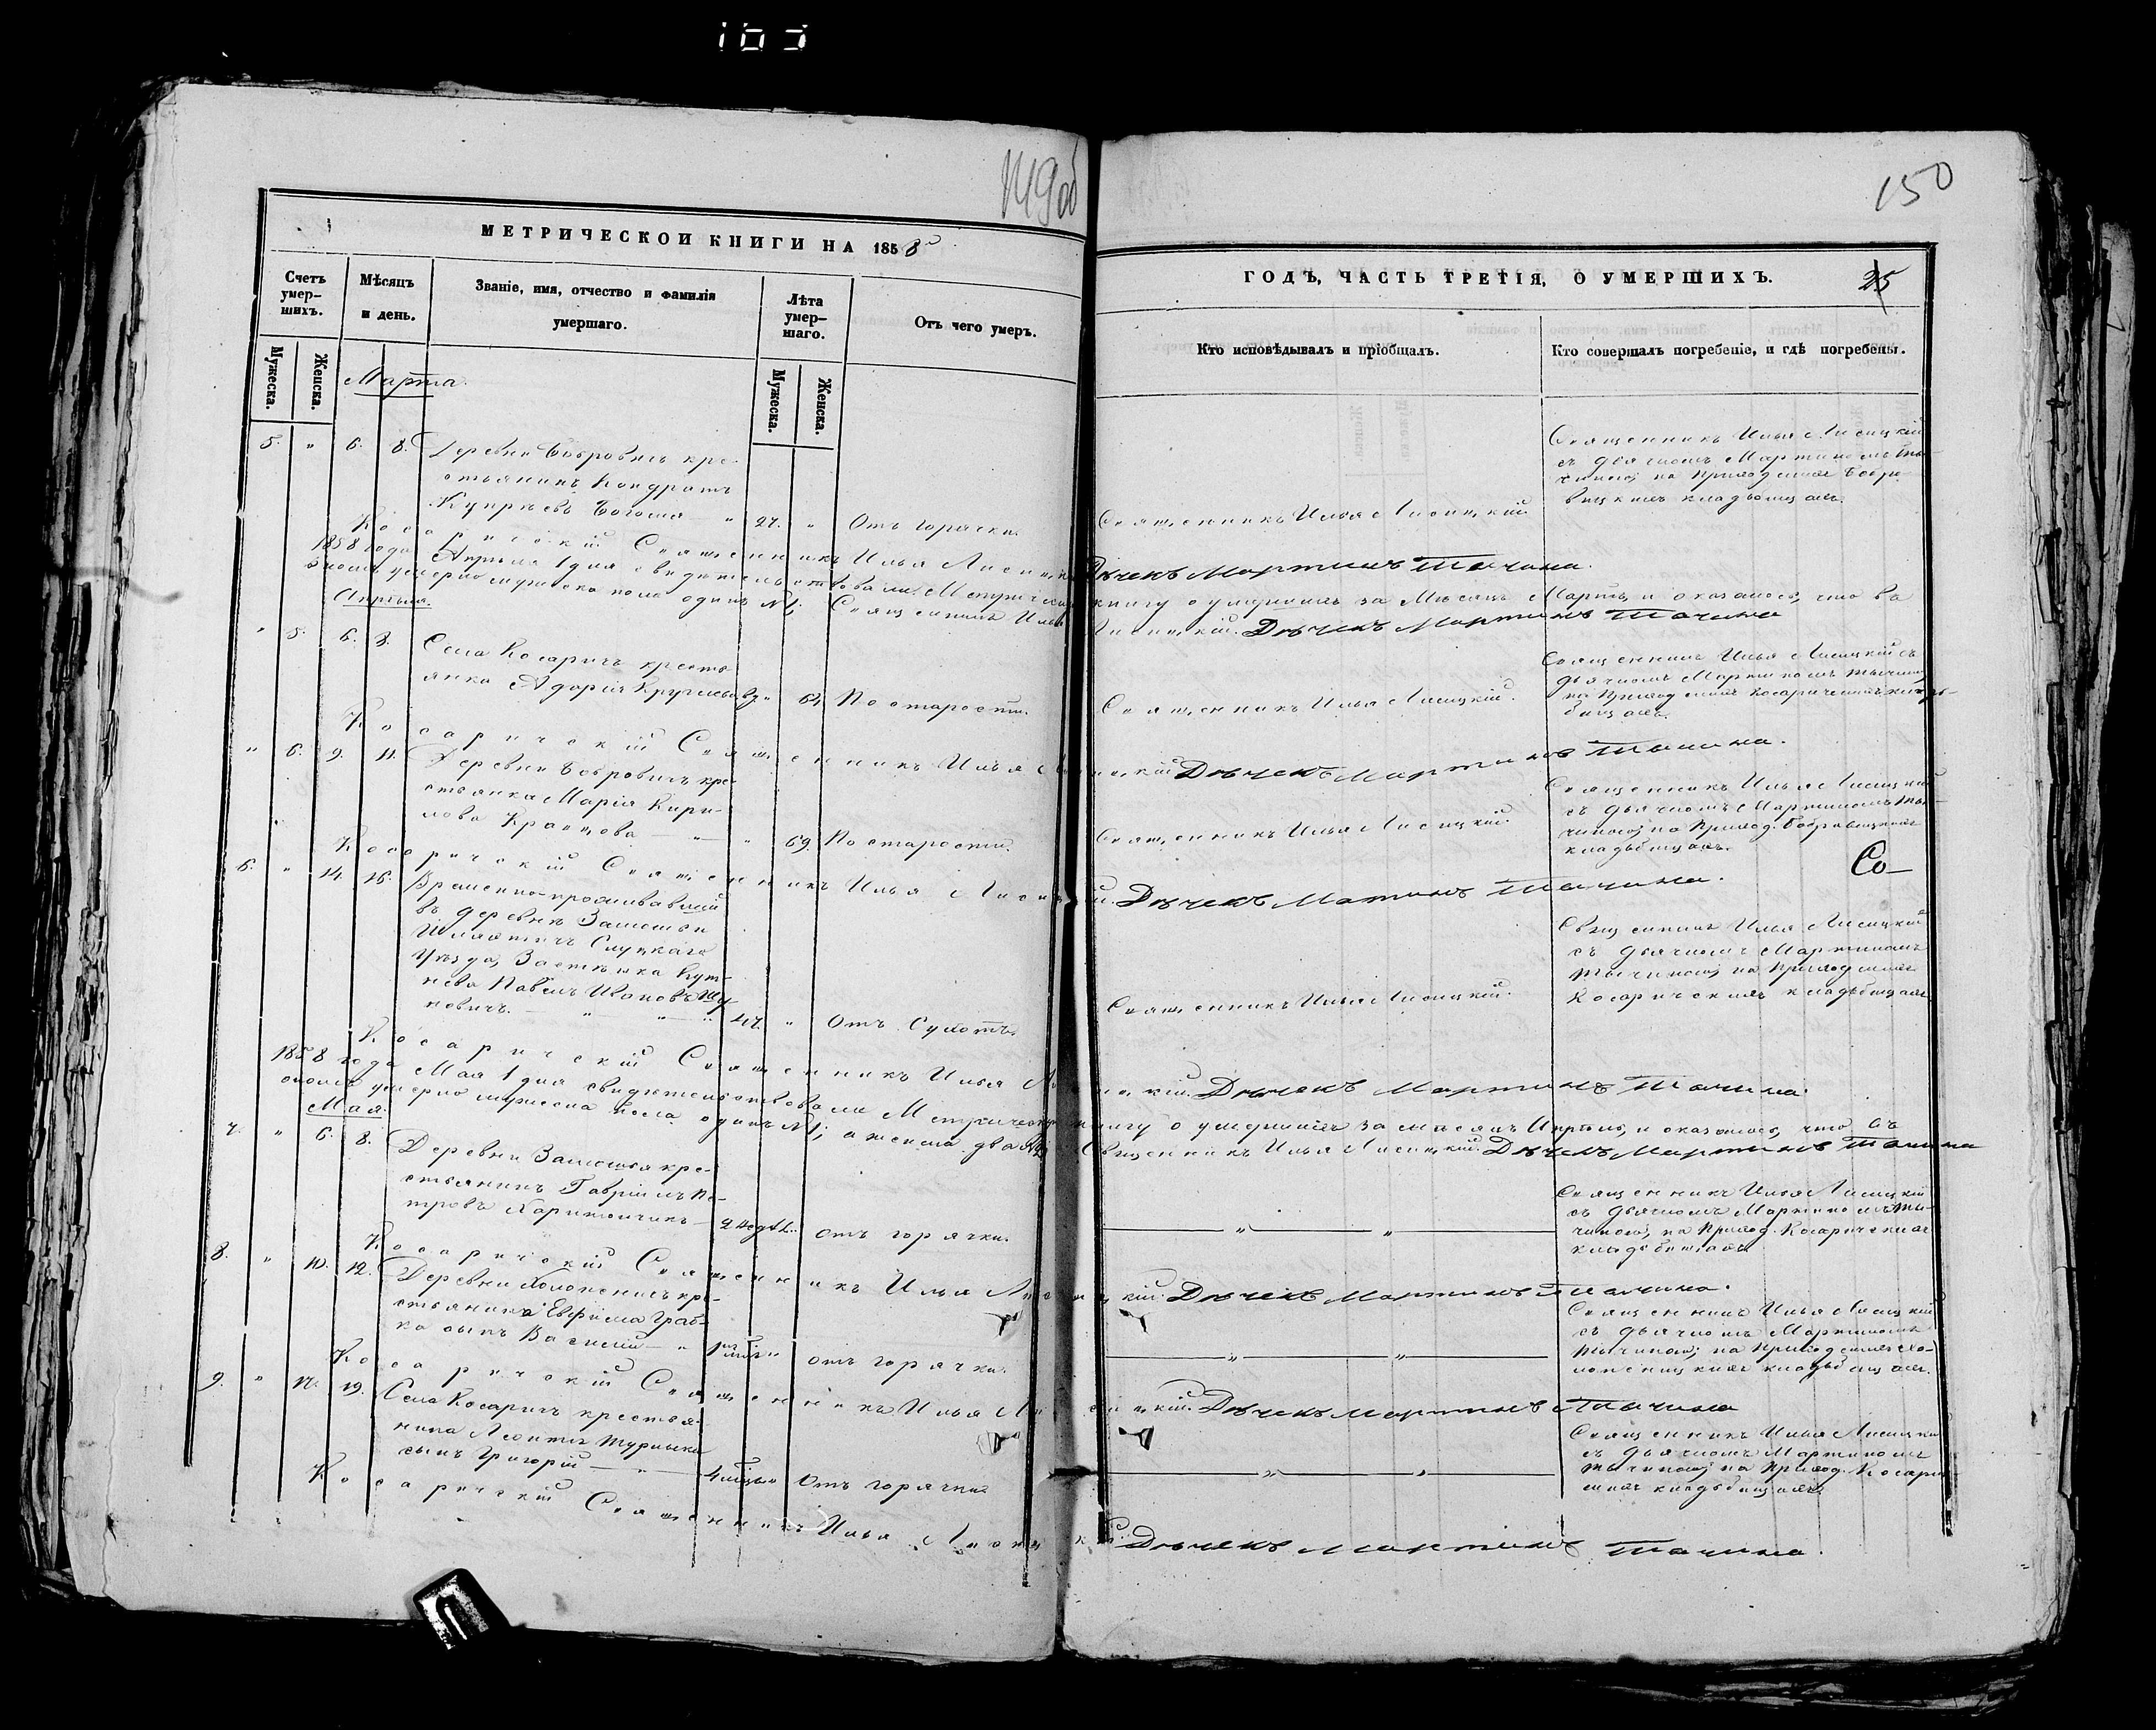 149об
150
МЕТРИЧЕСКОЙ КНИГИ НА 1858
ГОДЪ, ЧАСТЬ ТРЕТІЯ, О УМЕРШИХЪ.
25
Счетъ умер-шихъ.
Мѣсяцъ и день.
Званіе, имя, отчество и фамилія умершаго.
Лѣта умер-шаго.
Отъ чего умеръ.
Кто исповѣдывалъ и пріобщалъ.
Кто совершалъ погребеніе, и гдѣ погребены.
Мужеска.
Женска.
Мужеска.
Женска.
Марта.
5. " 6. 8. Деревни Бобровичъ кре-
стьянинъ Кондратъ
" 27. " Отъ горячки.
Священникъ Илья Лисицкій
Священникъ Илья Лисицкій
съ дьячкомъ Мартиномъ Ты-
чиною, на приходскихъ Бобро-
вицкихъ кладбищахъ.
Косаричскій Священникъ Илья Лисицкій Дьячекъ Мартинъ Тычина.
1858 года Апрѣля 1 дня свидѣтельствовали Метрическую книгу о умершихъ за Мѣсяцъ Мартъ, и оказалось, что въ
ономъ умерло мужеска пола одинъ №1; Священникъ Илья Лисицкій. Дьячекъ Мартинъ Тычина
Апрѣля.
" 5. 6. 8. Села Косаричъ кресть-
янка
" 64 По старости.
Священникъ Илья Лисицкій.
Священникъ Илья Лисицкій съ
дьячкомъ Мартиномъ Тычиною,
на приходскихъ Косаричскихъ клад-
бищахъ.
Косаричскій Священникъ Илья Лисицкій Дьячекъ Мартинъ Тычина.
" 6. 9. 11. Деревни Бобровичъ кре-
стьянка Марія Кири-
лова Кравцова — "
" 69. По старости.
Священникъ Илья Лисицкій.
Священникъ Илья Лисицкій
съ дьячкомъ Мартиномъ Ты-
чиною, на приход. Бобровицкихъ
кладбищахъ.
Со—
Косаричскій Священникъ Илья Лисицкій. Дьячекъ Мартинъ Тычина.
6. " 14. 16. Временно-проживавшій
въ деревнѣ Замостьи
Слуцкаго
уѣзда,
Павелъ Ивановъ
новичъ. — " — " — " 47. " Отъ Сухотъ.
Священникъ Илья Лисицкій.
Священникъ Илья Лисицкій
съ дьячкомъ Мартиномъ
Тычиною, на приходскихъ
Косаричскихъ кладбищахъ
Косаричскій Священникъ Илья Лисицкій. Дьячекъ Мартинъ Тычина.
1858 года Мая 1 дня свидѣтельствовали Метрическую книгу о умершихъ за мѣсяцъ Апрѣль, и оказалось, что въ
ономъ умерло мужеска пола одинъ №1; а женска два №2; Священникъ Илья Лисицкій. Дьячекъ Мартинъ Тычина
Мая.
7. " 6. 8. Деревни Замостья кре-
стьянинъ Гавріилъ Пе-
тровъ Харитончикъ —
2 недѣл. " отъ горячки.
— " — " —
Священникъ Илья Лисицкій
съ дьячкомъ Мартиномъ Ты-
чиною, на приход. Косаричскихъ
кладбищахъ
Косаричскій Священникъ Илья Лисицкій. Дьячекъ Мартинъ Тычина.
8. " 10. 12. Деревни Холопеничъ кре-
стьянина Евфима Граб-
ка сынъ Василій — "
отъ горячки.
— " — " —
Священникъ Илья Лисицкій
съ дьячкомъ Мартиномъ
Тычиною; на приходскихъ Хо-
лопеницкихъ кладбищахъ.
Косаричскій Священникъ Илья Лисицкій. Дьячекъ Мартинъ Тычина
9. " 17. 19. Села Косаричъ крестья-
нина Леонтія
сынъ Григорій — " —
отъ горячки
— " — " —
Священникъ Илья Лисицкій
съ дьячкомъ Мартиномъ
Тычиною, на приход. Косарич-
скихъ кладбищахъ.
Косаричскій Священникъ Илья Лисицкій Дьячекъ Мартинъ Тычина.